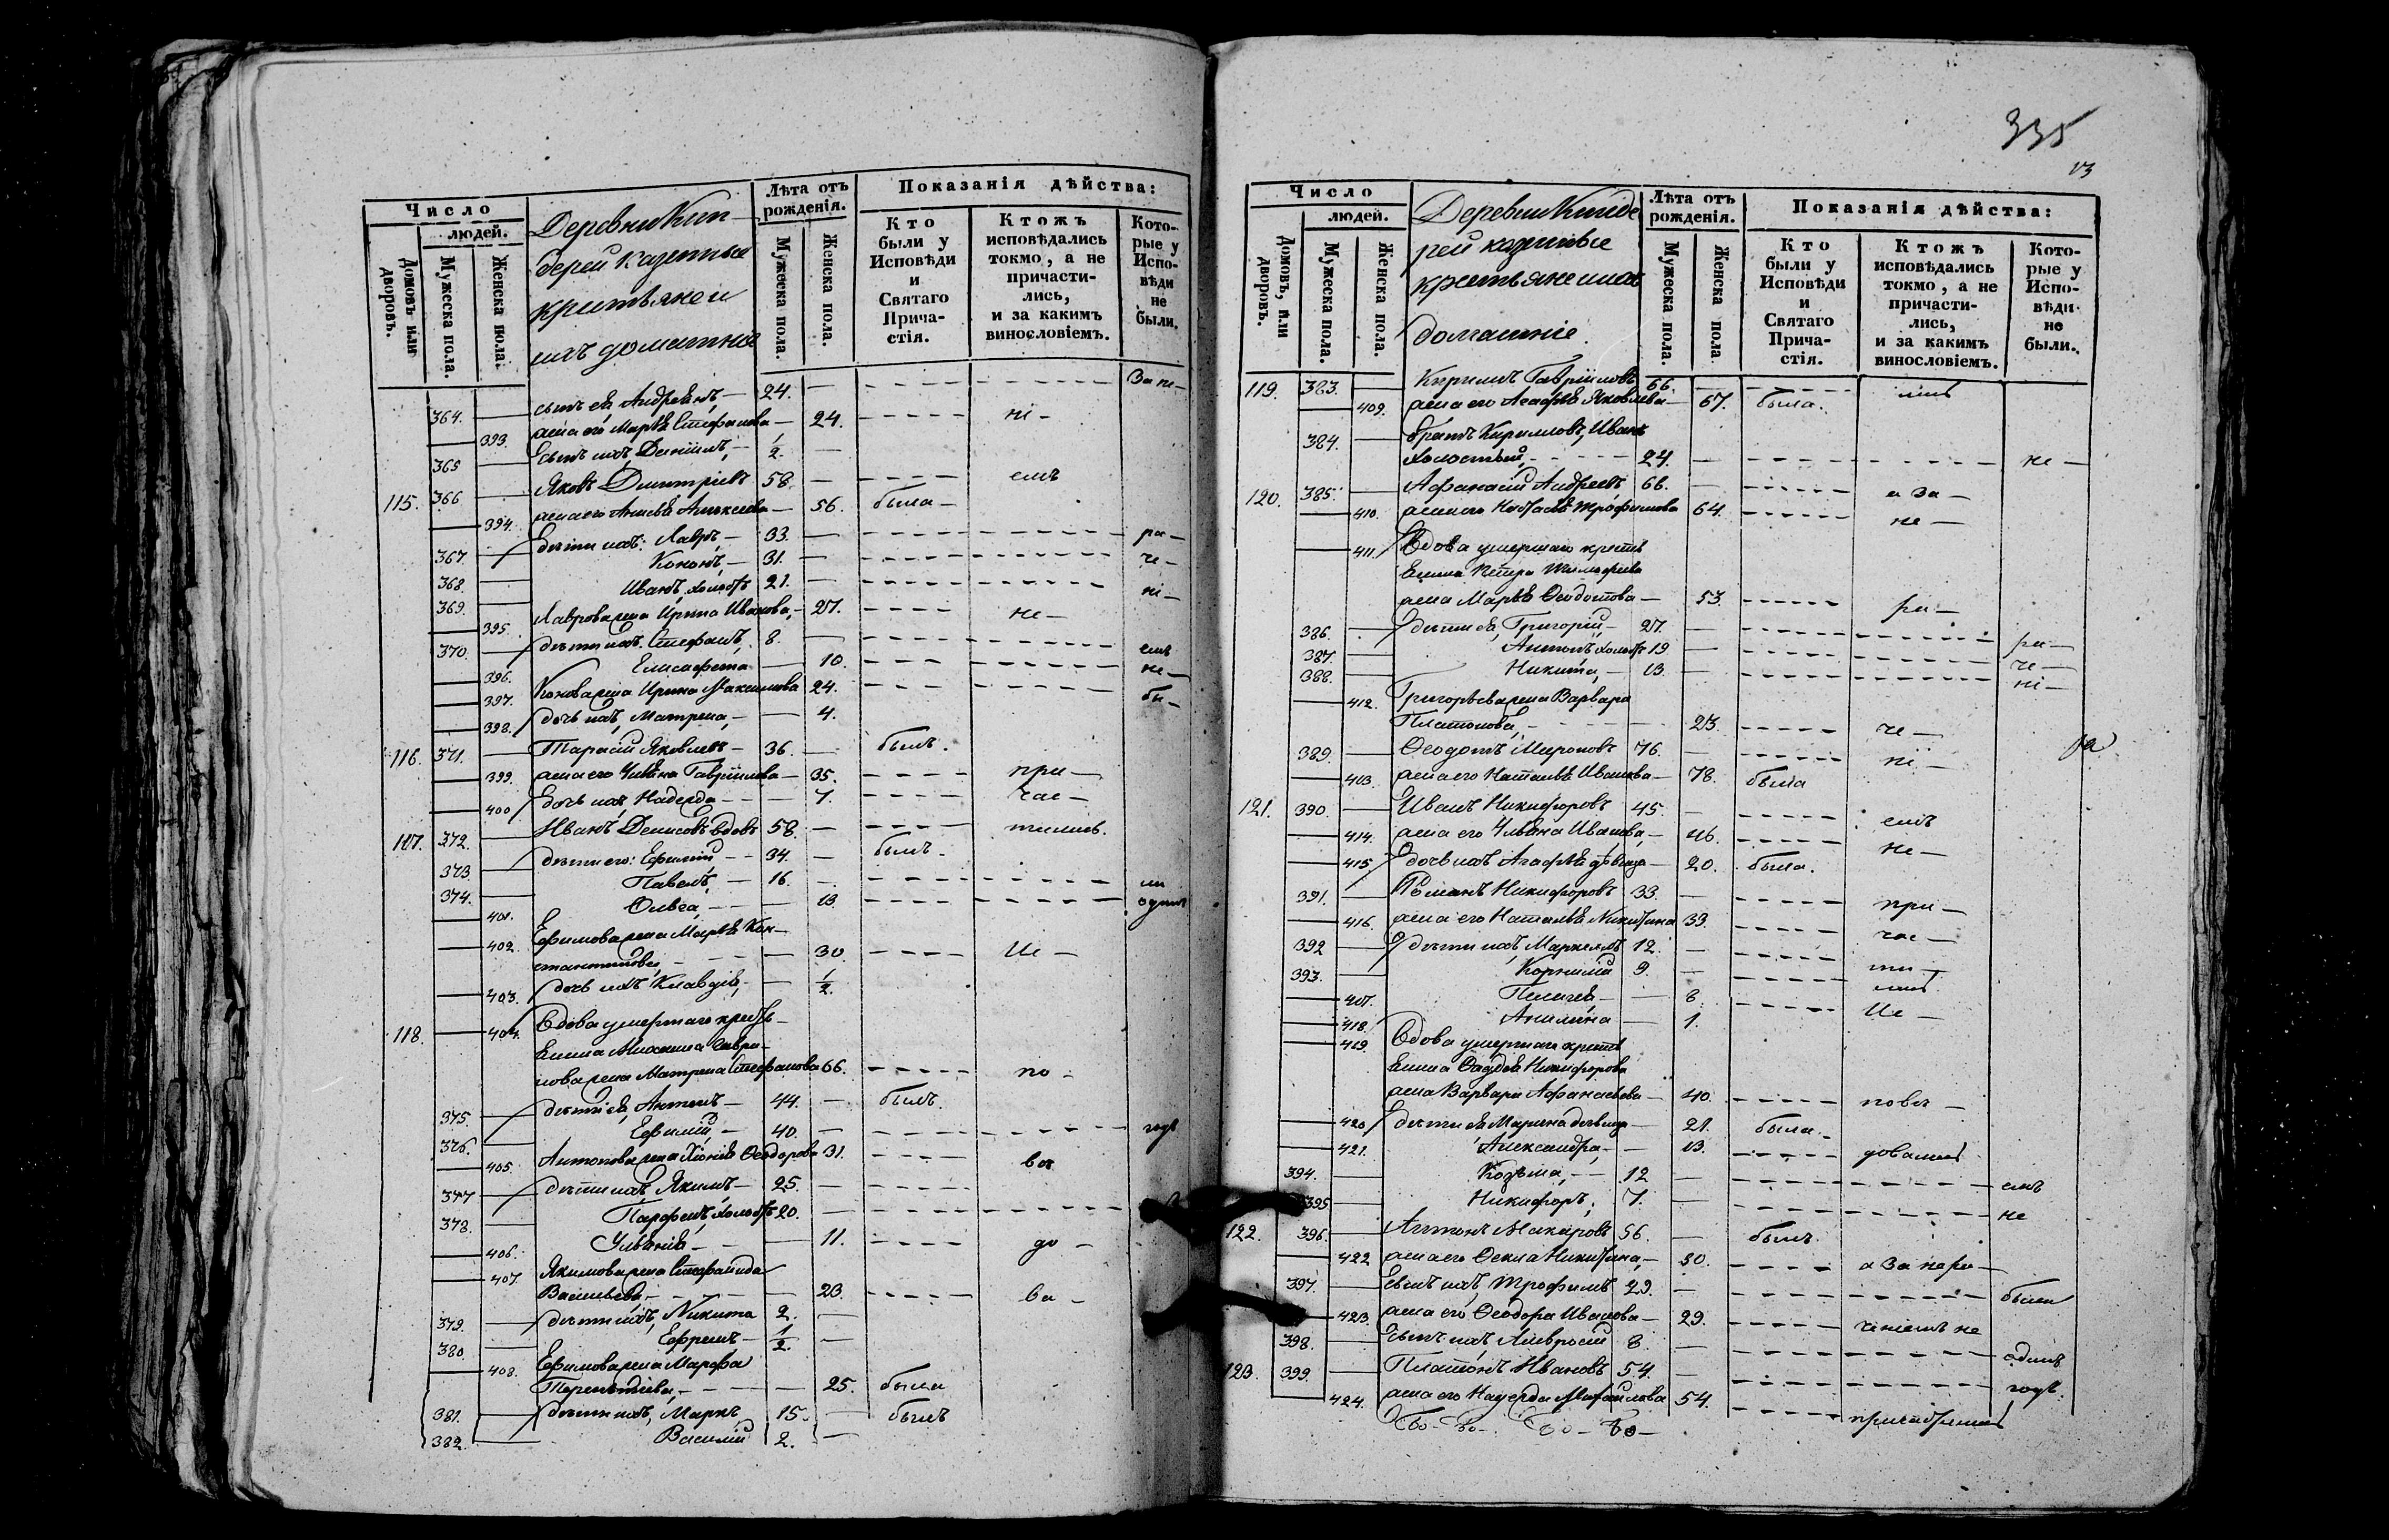 335
13
Число
людей.
Домовъ или дворовъ.
Мужеска пола.
Женска пола.
Деревни Кин-
дерей казенные
крестьяне и
ихъ домашніе
Лѣта отъ рожденія.
Мужеска пола.
Женска пола.
Показанія дѣйства:
Кто были у Исповѣди и Святаго Прича-стія.
Ктожъ исповѣдались токмо, а не причасти-лись, и за какимъ винословіемъ.
Кото-рые у Испо-вѣди не были.
364. сынъ ея Андреянъ 24. За не-
393. жена его Марѳа Стефанова 24. ні-
365 сынъ ихъ Даніилъ ½.
115. 366 Яковъ Димитріевъ 58. емъ
394. жена его Анисья Алексеева 56. была
367. дѣти ихъ: Лавръ 33. ра-
368. Кононъ 31. че-
369. Иванъ холостъ 21. ні-
395. Лаврова жена Ирина Иванова 27. не-
370. дѣти ихъ Стефанъ 8. емъ
396. Елисавета 10. не-
397. Конова жена Ирина Максимова 24. бы-
398. дочь ихъ Матрена 4.
116. 371. Тарасій Яковлевъ 36. былъ.
399. жена его Ульяна Гавріилова 35. при-
400 дочь ихъ Надежда 7. час-
117. 372. Иванъ Денисовъ вдовъ 58. тились.
373. дѣти его: Ефимій 34. былъ.
374. Павелъ 16. ли
401. Ольга 13 одинъ
402. Ефимова жена Марья Кон-
стантинова 30. Не
403. дочь ихъ Клавдія ½.
118. 404. Вдова умершаго кресть-
янина Михаила Гаври-
лова жена Матрена Стефанова 66. по-
375. дѣти ея, Антонъ 44. былъ.
376. Ефимій 40. годъ
405. Антонова жена Хіонія Ѳеодорова 31. вѣ
377 дѣти ихъ Якимъ 25.
378. Парфенъ, холостъ 20.
406. Ульянія 11. до
407. Якимова жена Стефанида
Васильева 23. ва
379. дѣти ихъ, Никита 2.
380 Ефремъ ½.
408. Ефимова жена Марфа
Терентіева 25. была
381. дѣти ихъ, Маркъ 15. былъ
382. Василій 2.
Число
людей.
Домовъ, или дворовъ.
Мужеска пола.
Женска пола.
Деревни Кинде
рей казенные
крестьяне и ихъ
домашніе.
Лѣта отъ рожденія.
Мужеска пола.
Женска пола
Показанія дѣйства:
Кто были у Исповѣди и Святаго Прича-стія.
Ктожъ исповѣдались токмо, а не причасти-лись, и за какимъ винословіемъ.
Кото-рые у Испо-вѣди не были.
119. 383. Кириллъ Гавріиловъ 66. лись
409. жена его Агафья Яковлева 67. была.
384. братъ Кирилловъ, Иванъ
холостый 24. не
120. 385. Афанасій Андреевъ 66. а за
410. жена его Наталья Трофимова 64. не
411. Вдова умершаго кресть
янина Петра Тимофеева
жена Марья Ѳеодотова 53. ра-
386. дѣти ея, Григорій 27. ра-
387. Антонъ холостъ 19 че-
388. Никита 13. ні-
412. Григорьева жена Варвара
Платонова 23. че
389. Ѳеодотъ Мироновъ 76. ні
413. жена его Наталья Иванова 78. была
121. 390. Иванъ Никифоровъ 45. емъ
414. жена его Ульяна Иванова 46. не
415. дочь ихъ Агафья дѣвица 20. была.
391. Романъ Никифоровъ 33. при
416. жена его Наталья Никитина 33. час
392 дѣти ихъ, Маркеллъ 12. ти
393. Корнилій 9. лись
417. Пелагея 8. Не
418. Акилина 1.
419. Вдова умершаго кресть
янина Ѳаддея Никифорова
жена Варвара Афанасьева 40. повѣ
420. дѣти ея Марина дѣвица 21. была.
421. Александра 13. довались
394. Козьма 12 емъ
395 Никифоръ 7. не
122. 396. Антонъ Макаровъ 56. былъ.
422 жена его Ѳекла Никитина 50. а за нера-
397. сынъ ихъ, Трофимъ 29. были
423 жена его Ѳеодора Иванова 29. ченіемъ не
398. сынъ ихъ, Амвросій 8. одинъ
123. 399. Платонъ Ивановъ 54. годъ.
424. жена его Надежда Михайлова 54. причастились